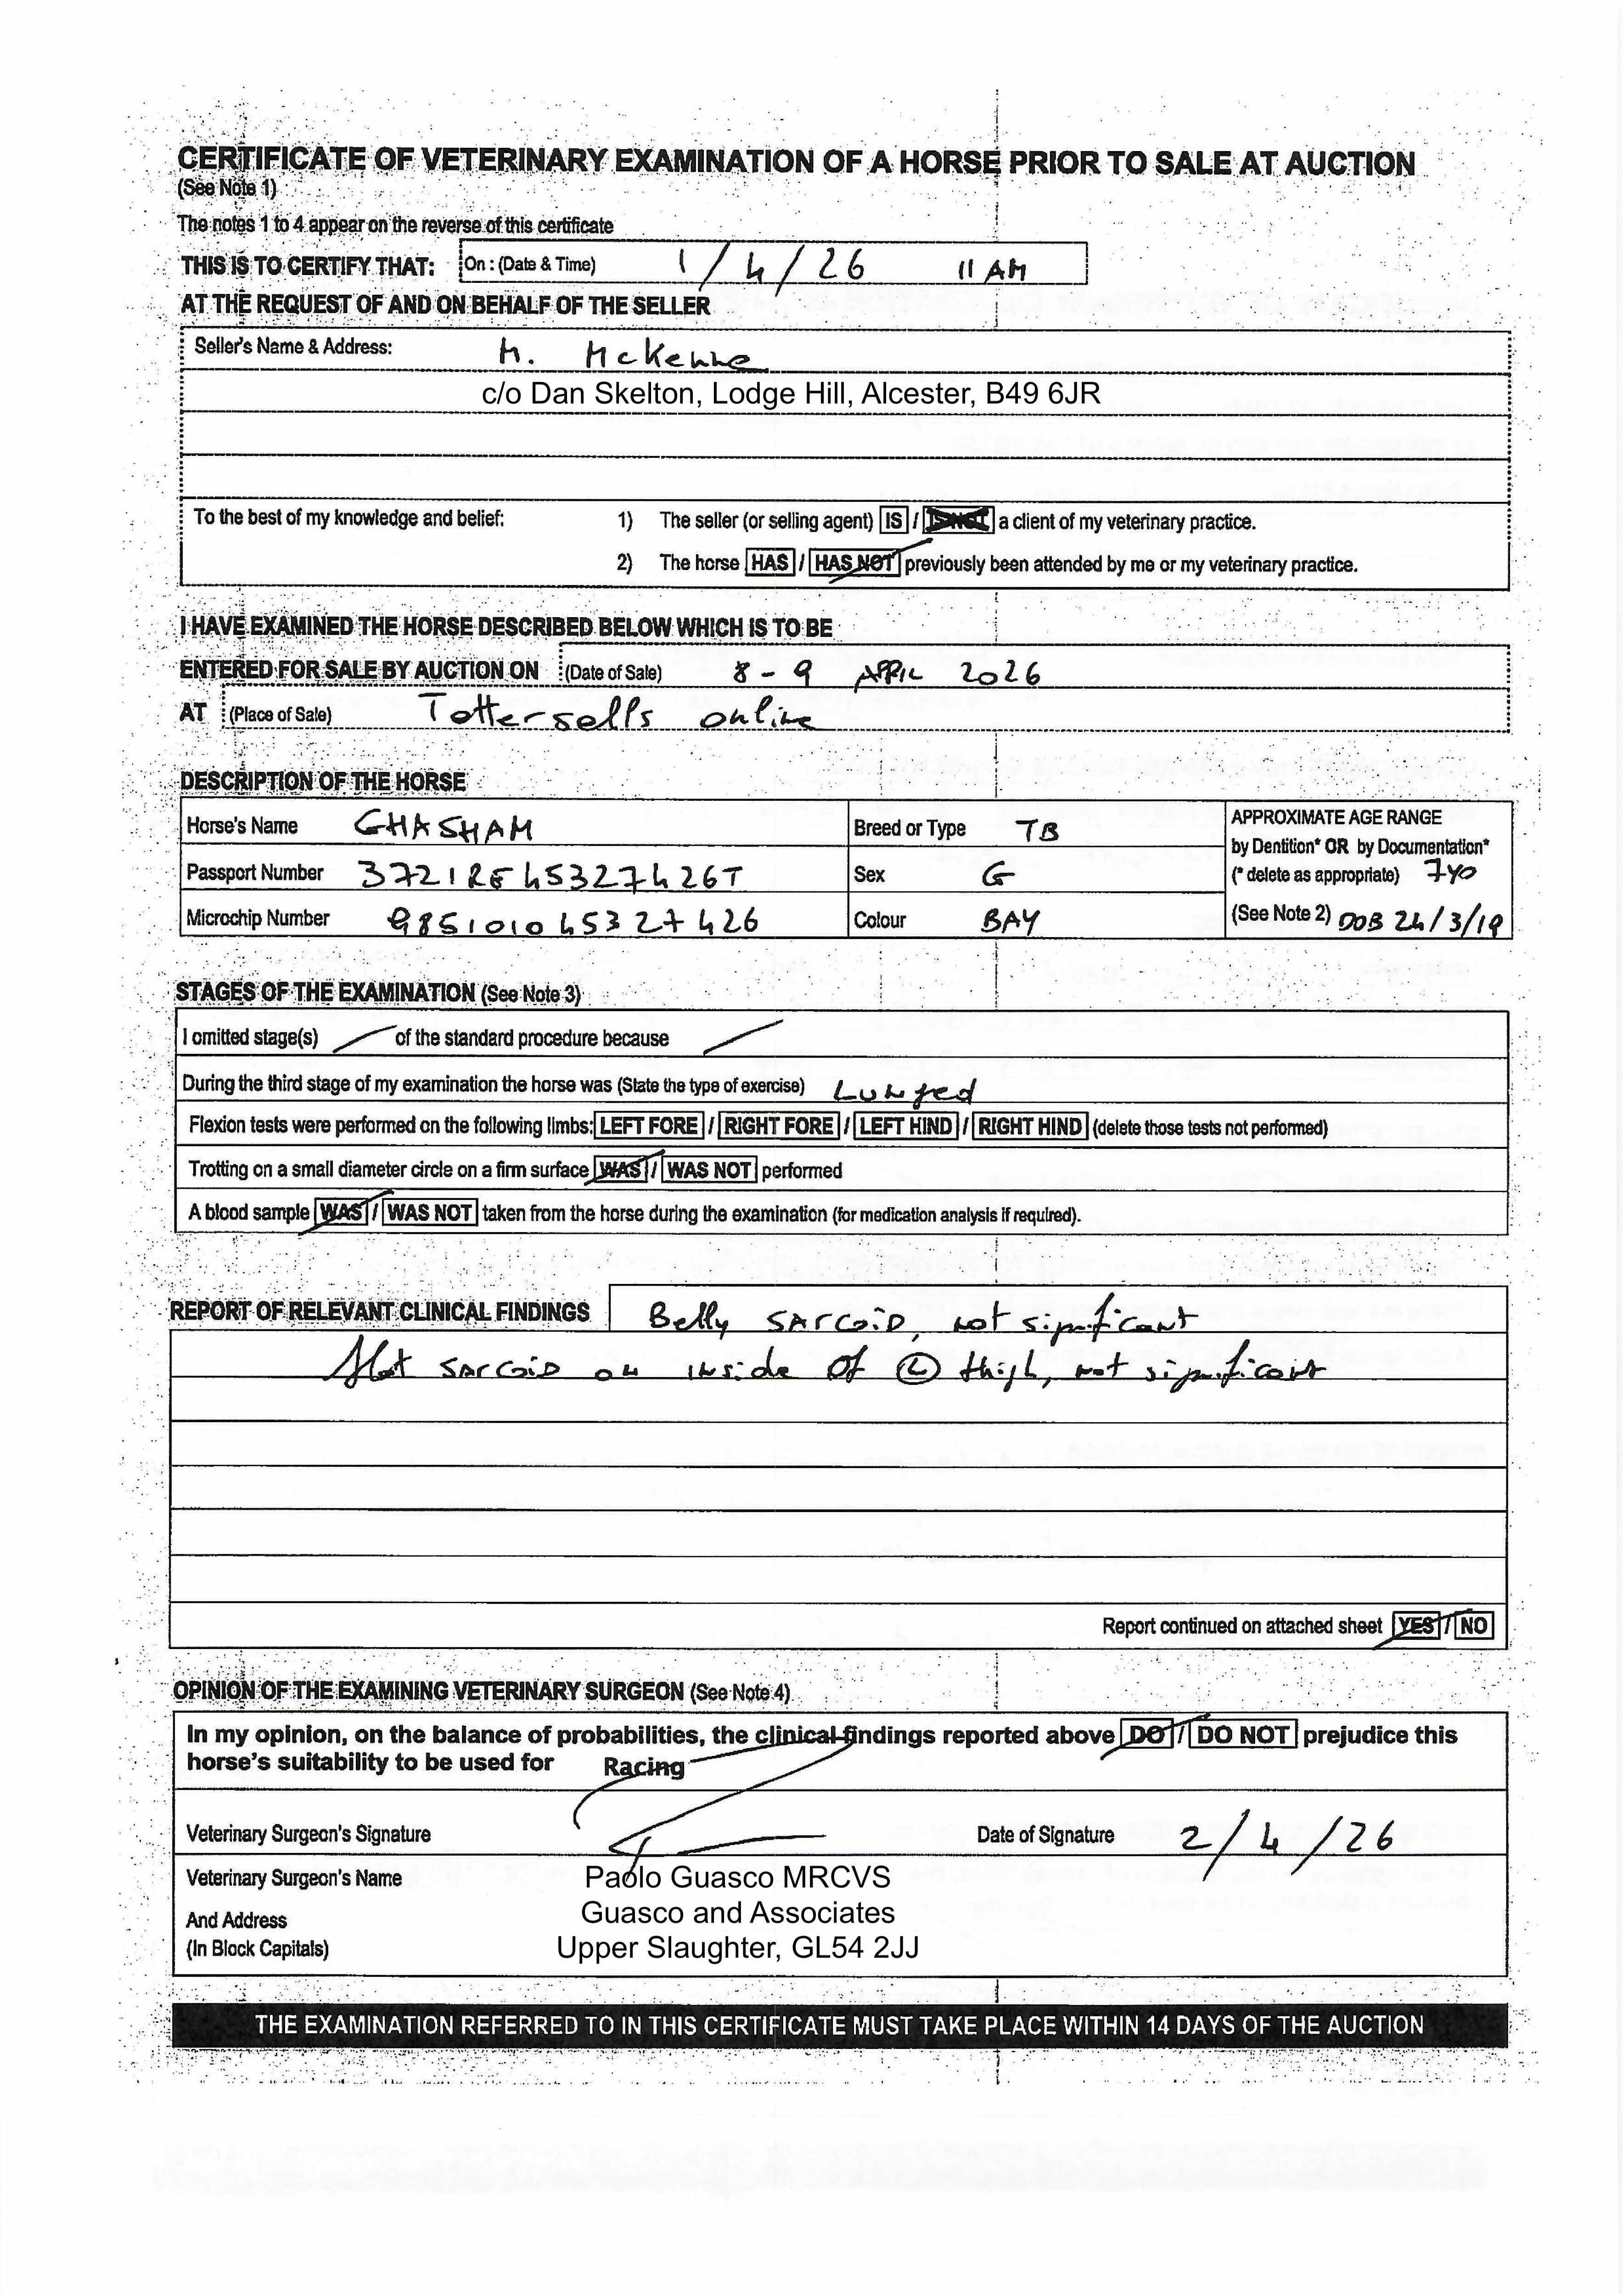 CERTIFICATE OF VETERINARY EXAMINATION OF A HORSE PRIOR TO SALE AT AUCTION
(See Note 1)
The notes 1 to 4 appear on the reverse of this certificate
THIS IS TO CERTIFY THAT: On : (Date & Time) 1/4/26 11 AM
AT THE REQUEST OF AND ON BEHALF OF THE SELLER
Seller's Name & Address:
c/o Dan Skelton, Lodge Hill, Alcester, B49 6JR
To the best of my knowledge and belief: 1) The seller (or selling agent) IS / IS NOT a client of my veterinary practice.
2) The horse HAS / HAS NOT previously been attended by me or my veterinary practice.
I HAVE EXAMINED THE HORSE DESCRIBED BELOW WHICH IS TO BE
ENTERED FOR SALE BY AUCTION ON (Date of Sale) 8 - 9 APRIL 2026
AT (Place of Sale) Tattersalls online
DESCRIPTION OF THE HORSE
Horse's Name GHASHAM Breed or Type TB APPROXIMATE AGE RANGE
by Dentition* OR by Documentation*
Passport Number 372IRE45327426T Sex G (* delete as appropriate) 7yo
Microchip Number 985101045327426 Colour BAY (See Note 2) DOB 24/3/19
STAGES OF THE EXAMINATION (See Note 3)
I omitted stage(s) of the standard procedure because
During the third stage of my examination the horse was (State the type of exercise) Lunged
Flexion tests were performed on the following limbs: LEFT FORE / RIGHT FORE / LEFT HIND / RIGHT HIND (delete those tests not performed)
Trotting on a small diameter circle on a firm surface WAS / WAS NOT performed
A blood sample WAS / WAS NOT taken from the horse during the examination (for medication analysis if required).
REPORT OF RELEVANT CLINICAL FINDINGS Belly SARCOID, not significant
flat SARCOID on inside of (L) thigh, not significant
Report continued on attached sheet YES / NO
OPINION OF THE EXAMINING VETERINARY SURGEON (See Note 4)
In my opinion, on the balance of probabilities, the clinical findings reported above DO / DO NOT prejudice this
horse's suitability to be used for Racing
Veterinary Surgeon's Signature Date of Signature 2/4/26
Veterinary Surgeon's Name Paolo Guasco MRCVS
And Address Guasco and Associates
(In Block Capitals) Upper Slaughter, GL54 2JJ
THE EXAMINATION REFERRED TO IN THIS CERTIFICATE MUST TAKE PLACE WITHIN 14 DAYS OF THE AUCTION